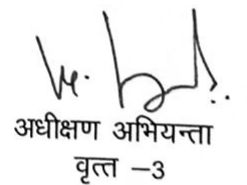 अधीक्षण अभियन्ता
वृत्त –3